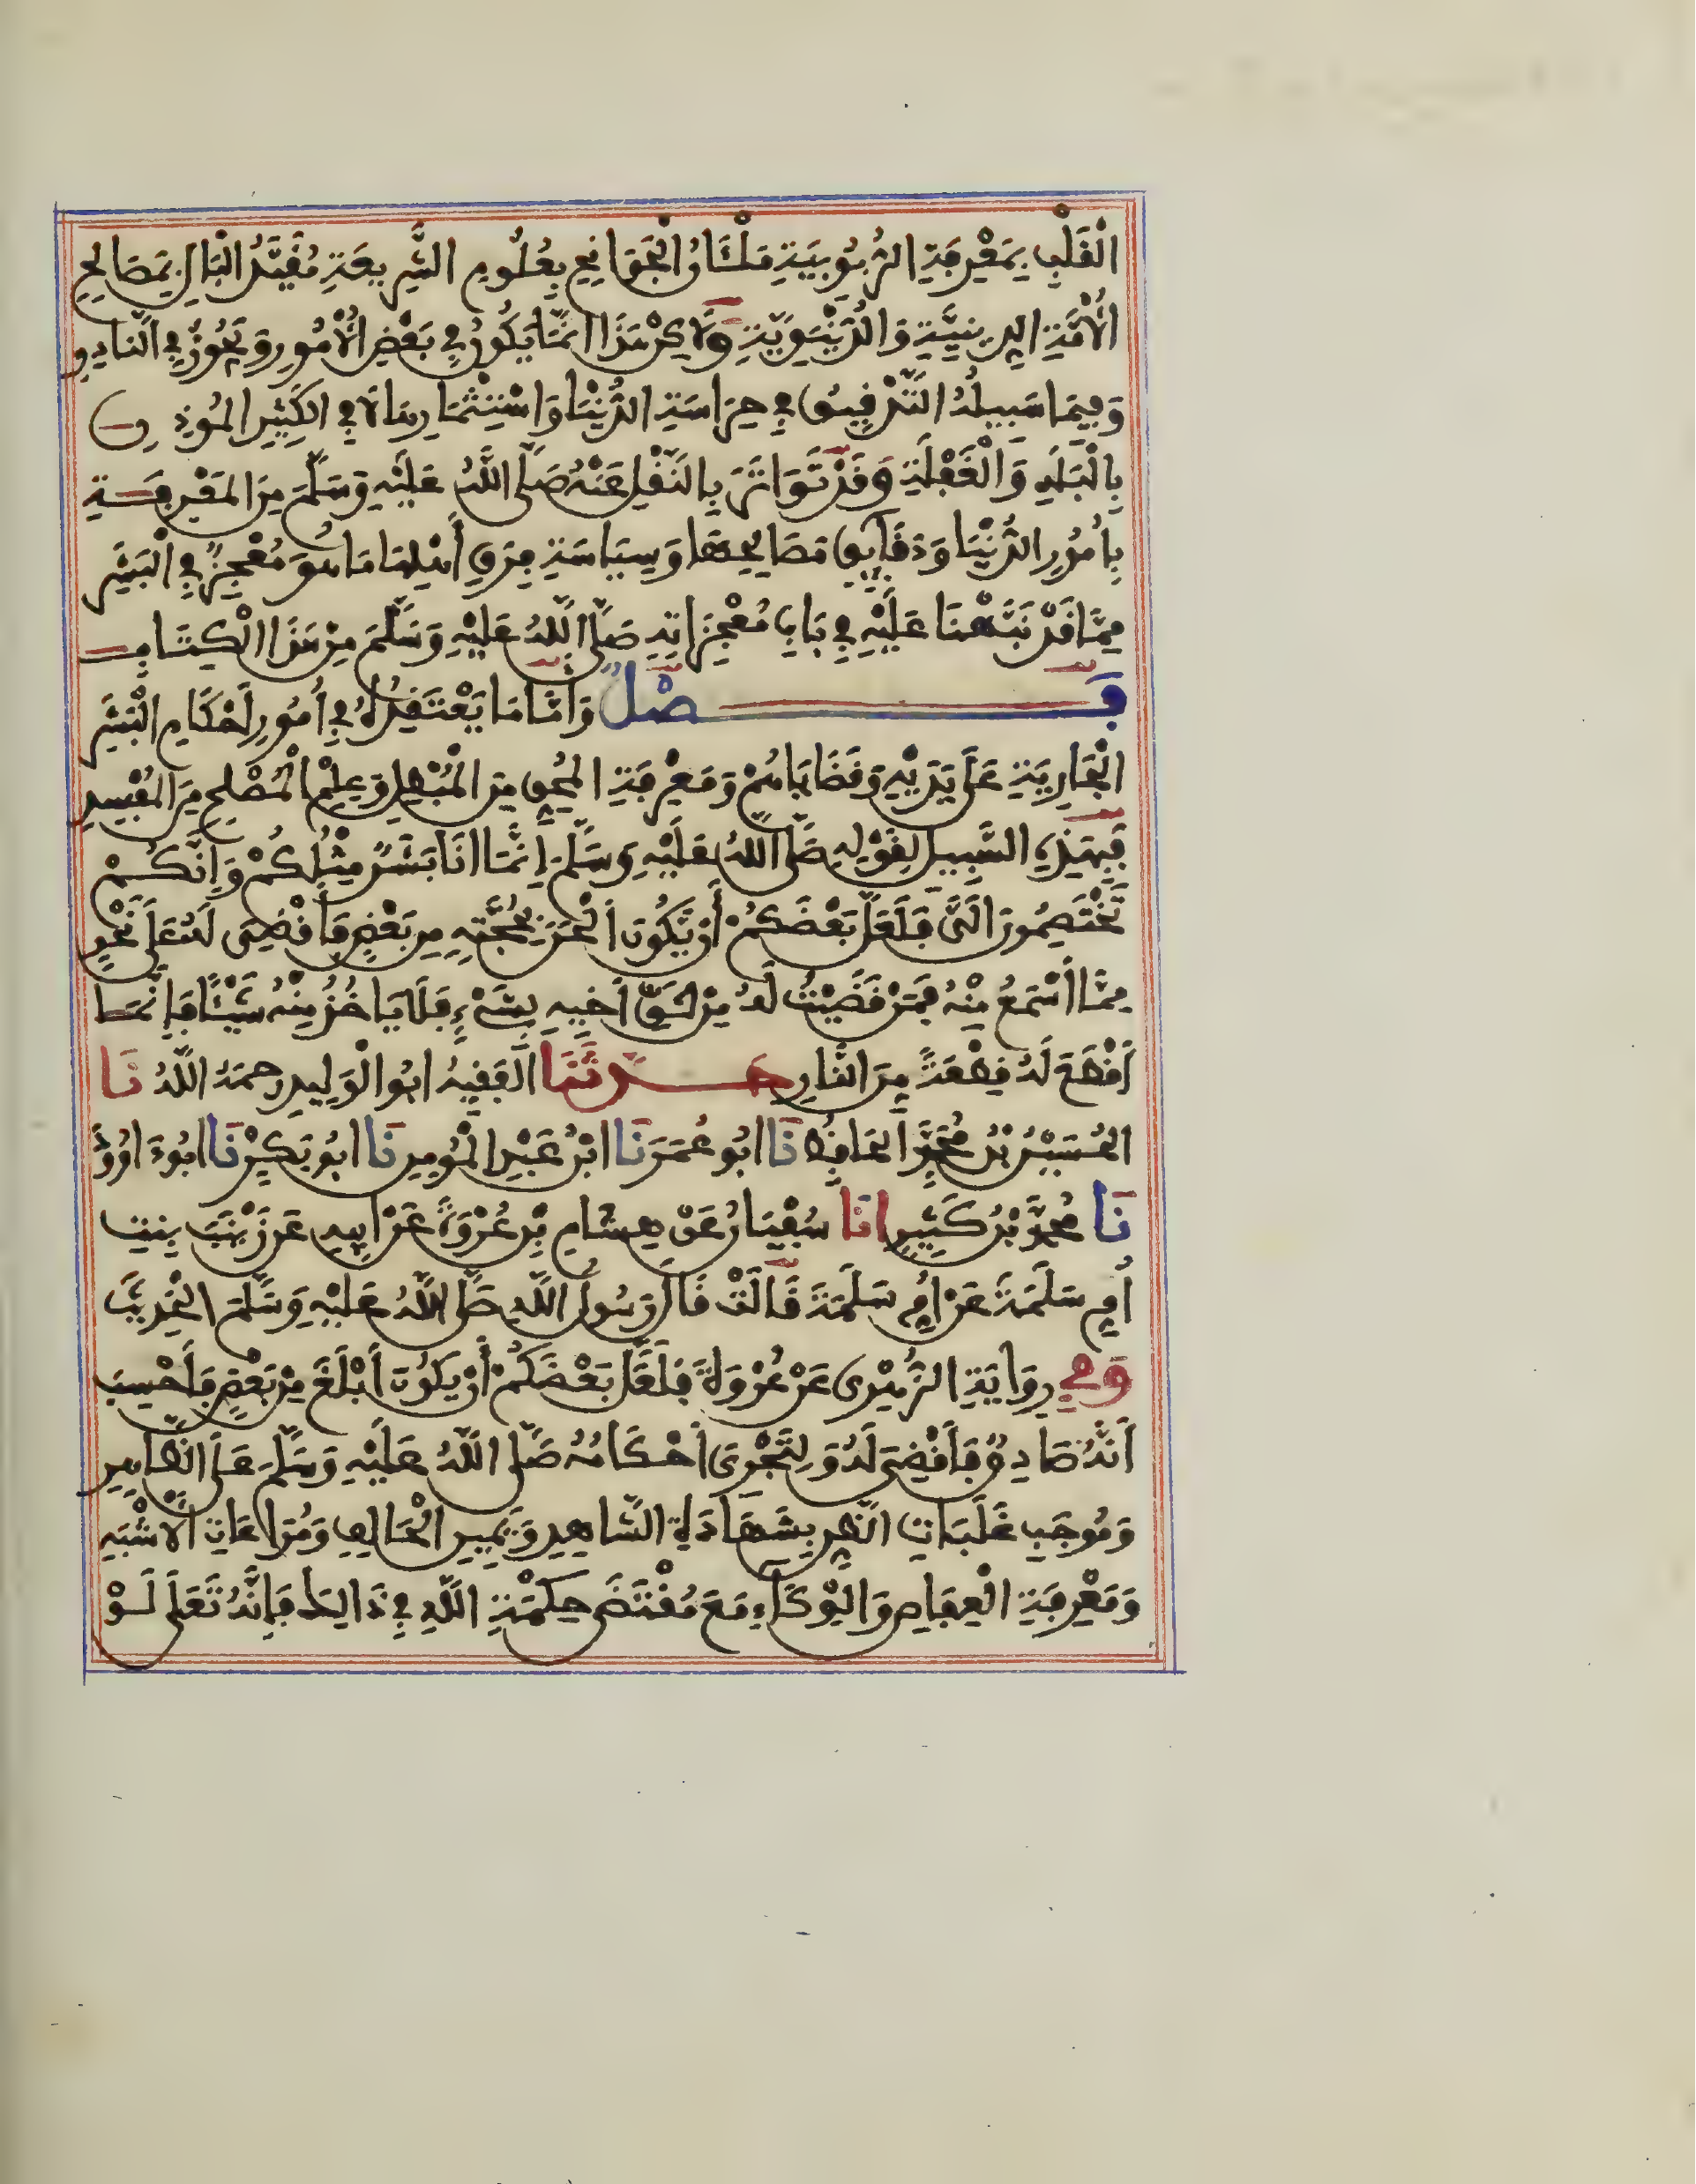 الْقَلْبِ بِمَعْرِفَةِ الرُّبُوبِيَّةِ مَلْآنُ الْجَوَانِحِ بِعُلُومِ الشَّرِيعَةِ مُقَيَّدُ الْبَالِ بِمَصَالِحِ
الْأُمَّةِ الدِّينِيَّةِ وَالدُّنْيَوِيَّةِ وَلَاكِنْ هَذَا انَّمَا يَكُونُ فِي بَعْضِ الْأُمُورِ وَيَجُوزُ فِي النَّادِرِ
وَفِيمَا سَبِيلُهُ التَّدْقِيقُ فِي حِرَاسَةِ الدُّنْيَا وَاسْتِثْمَارِهَا لَا فِي الكَثِيرِ الْمُوذِنِ
بِالْبَلَهِ وَالْغَفْلَةِ وَقَدْ تَوَاتَرَ بِالنَّقْلِ عَنْهُ صَلَّى اللَّهُ عَلَيْهِ وَسَلَّمَ مِنَ الْمَعْرِفَةِ
بِأُمُورِ الدُّنْيَا وَدَقَايِقِ مَصَالِحِهَا وَسِيَاسَةِ فِرَقِ أَهْلِهَا مَا هُوَ مُعْجِزٌ فِي الْبَشَرِ
مِمَّا قَدْ نَبَّهْنَا عَلَيْهِ فِي بَابِ مُعْجِزَاتِهِ صَلَّى اللَّهُ عَلَيْهِ وَسَلَّمَ مِنْ هَذَا الْكِتَابِ
فَصْلٌ وَأَمَّا مَا يَعْتَقِدُهُ فِي أُمُورِ أَحْكَامِ الْبَشَرِ
الْجَارِيَةِ عَلَى يَدَيْهِ وَقَضَايَاهُمْ وَمَعْرِفَةِ الْمُحِقِّ مِنَ الْمُبْطِلِ وَعِلْمِ الْمُصْلِحِ مِنَ الْمُفْسِدِ
فَبِهَذِهِ السَّبِيلِ لِقَوْلِهِ صَلَّى اللَّهُ عَلَيْهِ وَسَلَّمَ إِنَّمَا انَا بَشَرٌ مِثْلُكُمْ وَإِنَّكُمْ
تَخْتَصِمُونَ الَيَّ فَلَعَلَّ بَعْضَكُمْ أَنْ يَّكُونَ أَلْحَنَ بِحُجَّتِهِ مِن بَعْضٍ فَأَقْضِيَ لَهُ عَلَى نَحْوٍ
مِمَّا أَسْمَعُ مِنْهُ فَمَنْ قَضَيْتُ لَهُ مِنْ حَقِّ أَخِيهِ بِشَيْءٍ فَلَا يَاخُذْ مِنْهُ شَيْئًا فَإِنَّمَا
أَقْطَعُ لَهُ قِطْعَةً مِنَ النَّارِ حَدَّثَنَا الْفَقِيهُ ابُو الْوَلِيدِ رَحِمَهُ اللَّهُ نَا
الْحُسَيْنُ بْنُ مُحَمَّدٍ الْحَافِظُ نَا ابُو عُمَرَ نَا ابْنُ عَبْدِ الْمُومِنِ نَا ابُو بَكْرٍ نَا ابُو دَاوُودَ
نَا مُحَمَّدُ بْنُ كَثِيرٍ انَا سُفْيَانُ عَنْ هِشَامِ بْنِ عُرْوَةَ عَنْ ابِيهِ عَنْ زَيْنَبَ بِنْتِ
أُمِّ سَلَمَةَ عَنْ أُمِّ سَلَمَةَ قَالَتْ قَالَ رَسُولُ اللَّهِ صَلَّى اللَّهُ عَلَيْهِ وَسَلَّمَ الْحَدِيثَ
وَفِي رِوَايَةِ الزُّهْرِيِّ عَنْ عُرْوَةَ فَلَعَلَّ بَعْضَكُمْ أَنْ يَكُونَ أَبْلَغَ مِنْ بَعْضٍ فَأَحْسِبَ
أَنَّهُ صَادِقٌ فَأَقْضِيَ لَهُ وَلِتَجْرِيَ أَحْكَامُهُ صَلَّى اللَّهُ عَلَيْهِ وَسَلَّمَ عَلَى الظَّاهِرِ
وَمُوجَبِ غَلَبَاتِ الظَّنِّ بِشَهَادَةِ الشَّاهِدِ وَيَمِينِ الْحَالِفِ وَمُرَاعَاةِ الْأَشْبَهِ
وَمَعْرِفَةِ الْعِفَاصِ وَالْوِكَاءِ مَعَ مُقْتَضَى حِكْمَةِ اللَّهِ فِي ذَالِكَ فَإِنَّهُ تَعَلَى لَوْ